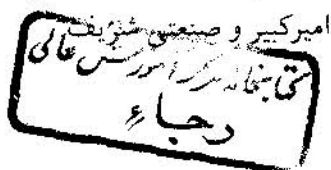 امیرکبیر و صنعتی شریف
کتابخانه مرکز آموزش عالی
رجاء